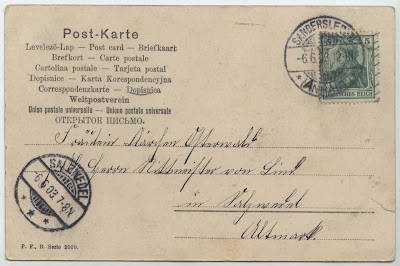 Post-Karte
Levelező-Lap — Post card — Briefkaart
Brefkort — Carte postale
Cartolina postale — Tarjeta postal
Dopisnice — Karta Korespondencyjna
Correspondenzkarte — Dopisnica
Weltpostverein
Union postale universelle — Unione postale universale
ОТКРЫТОЕ ПИСЬМО.
SANDERSLEBEN
-6.6.03
5
DEUTSCHES REICH
Fräulein Klärchen Osterwald
Herrn Rittmeister von Linb
in Salzwedel
Altmark.
SALZWEDEL
-6.6.03.7-8N
P. F., B. Serie 2000.